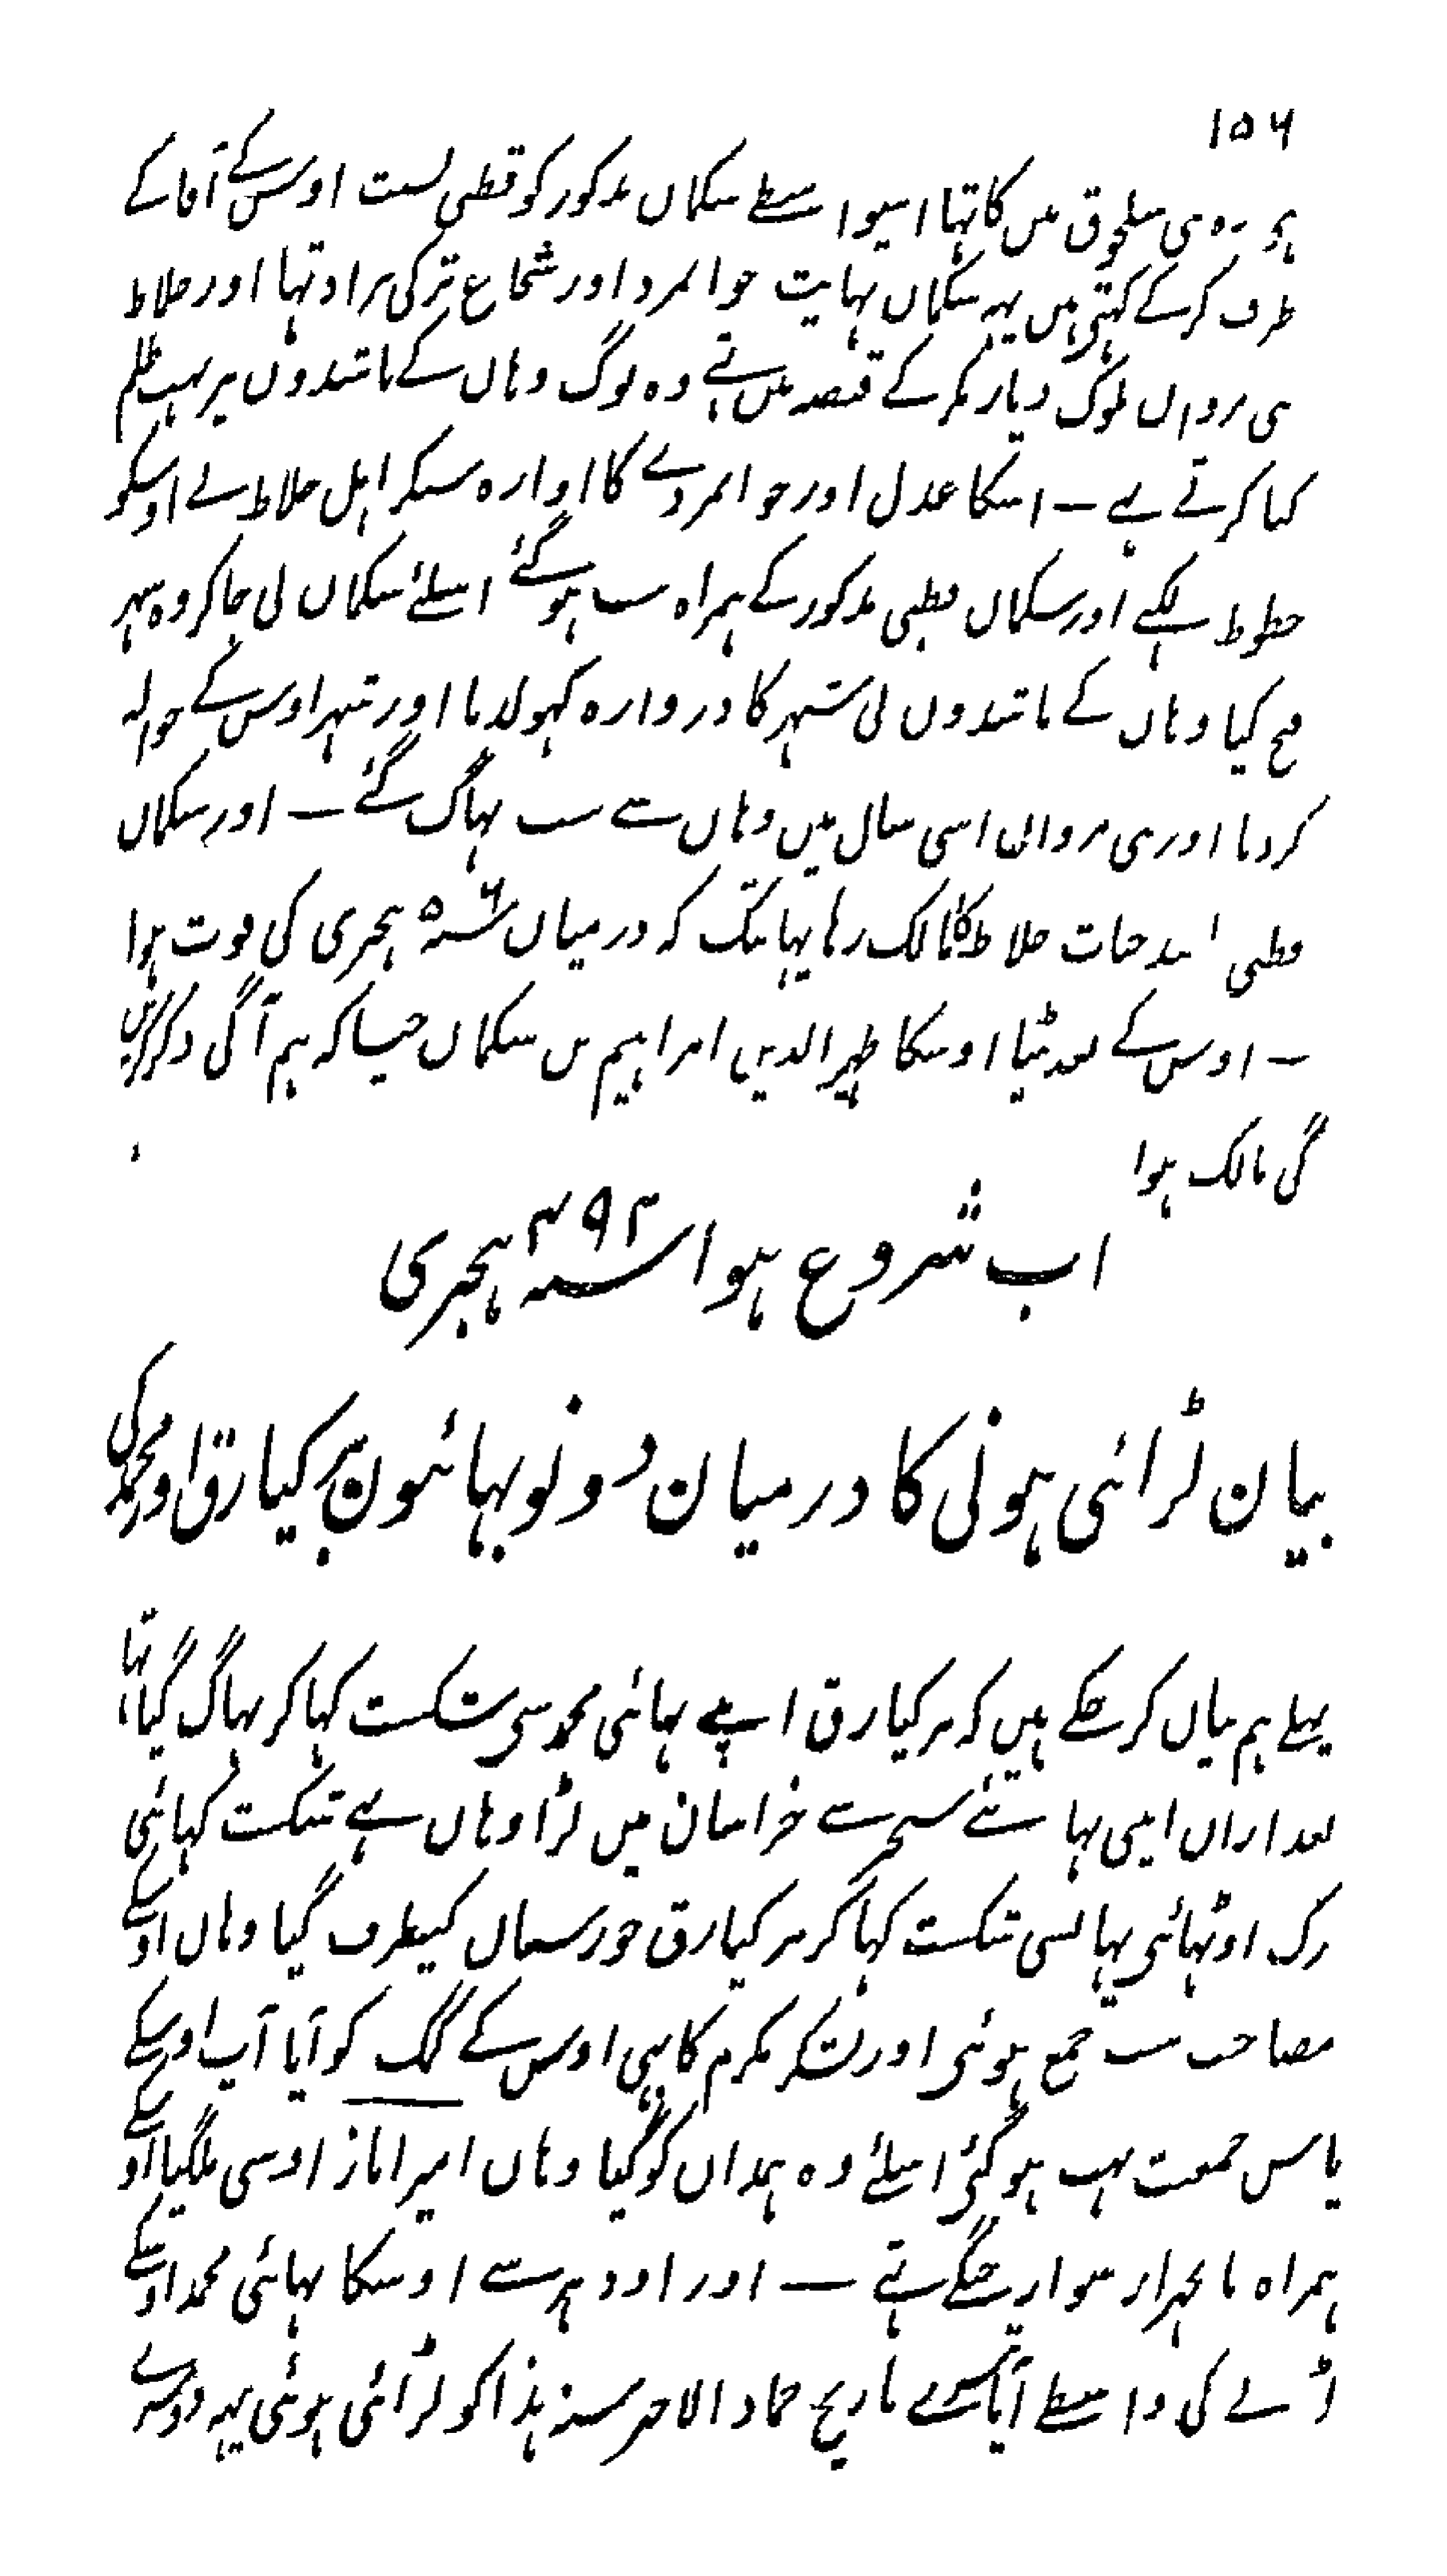 ۱۵۶
ہو بنی سلجوق میں کا تہا اسیواسطے سکمان مذکور کو قطبی نسبت اوس کے آقا کے
طرف کرکے کہتی ہیں یہہ سکمان نہایت جوانمرد اور شجاع ترکی نژاد تہا اور خلاط
بنی مروان ملوک دیار بکر کے قبضہ میں تہے وہ لوگ وہاں کے باشندوں پر بہت ظلم
کیا کرتے تہے ۔ اسکا عدل اور جوانمردے کا اوازہ سنکر اہل خلاط نے اوسکو
خطوط لکہے اور سکمان قطبی مذکور کے ہمراہ سب ہو گئے اسلئے سکمان نی جاکر وہ شہر
فتح کیا وہاں کے باشندوں نی شہر کا دروازہ کہولدیا اور شہر اوس کے حوالہ
کردیا اور بنی مروان اسی سال میں وہاں سے سب بہاگ گئے ۔ اور سکمان
قطبی خلاط کا مالک رہا یہانتک کہ درمیان سنہ ۵۰۶ ہجری کی فوت ہوا
۔ اوس کے بعد بیٹا اوسکا ظہیر الدین ابراہیم بن سکمان جیسا کہ ہم آگی ذکر کریں
گی مالک ہوا
اب شروع ہوا سنہ ۴۹۳ ہجری
بیان لڑائی ہونی کا درمیان دونو بہائیون برکیارق اور محمد کی
پہلے ہم بیان کرچکے ہیں کہ برکیارق اپنے بہائی محمد سی شکست کہا کر بہاگ گیا تہا
بعد ازاں اپنی بہائی سنجر سے خراسان میں لڑا وہاں سے شکست کہائی
زک اوٹہائی یہانسی شکست کہا کر برکیارق خوزستان کیطرف گیا وہاں اوسکے
مصاحب سب جمع ہوئی اور لشکر مکرم کا بہی اوس کے کمک کو آیا اب اوسکے
پاس جمعیت بہت ہو گئی اسلئے وہ ہمدان کو گیا وہاں امیر ایاز اوسی ملگیا اوسکے
ہمراہ پانچہزار سوار تہے ۔ اور اودہر سے اوسکا بہائی محمد اوسکے
لڑنے کی واسطے آیا تیسرے تاریخ جماد الاخر سنہ ہذا کو لڑائی ہوئی یہہ دوسرے